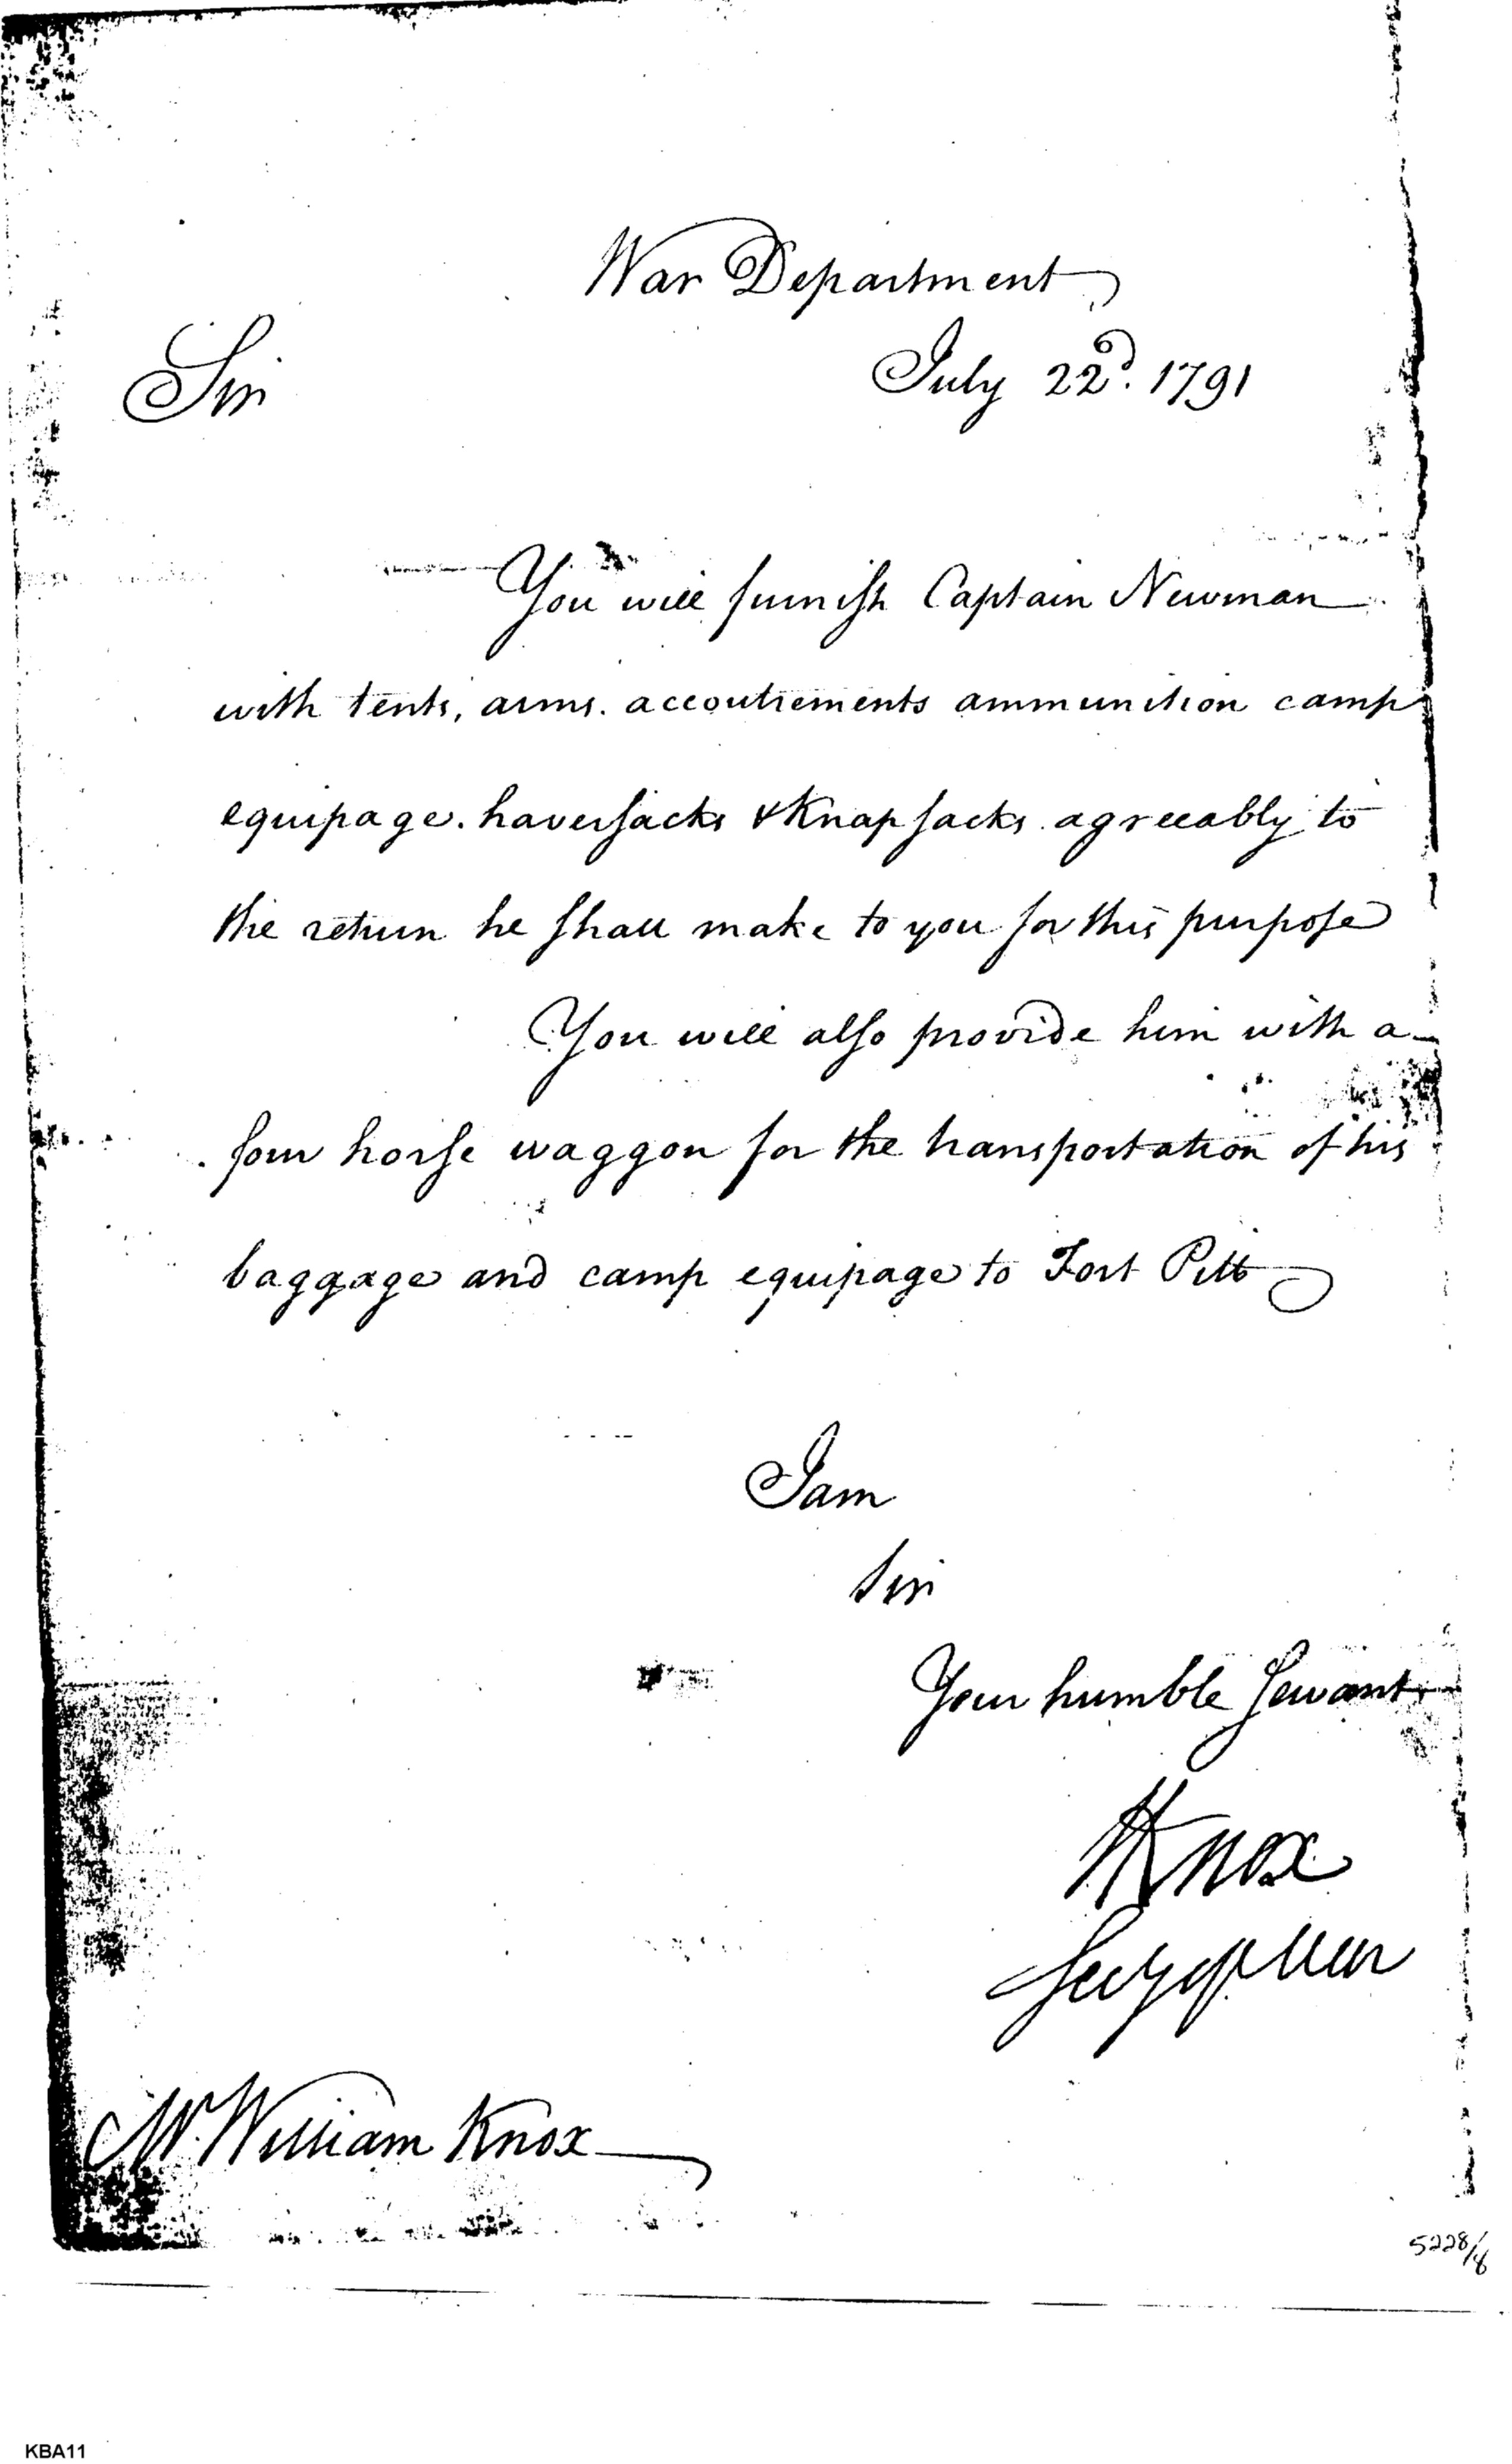 War Department
July 22d. 1791
Sir
You will furnish Captain Newman
with tents, arms. accoutrements ammunition camp
equipage. haversacks & Knapsacks agreeably to
the return he shall make to you for this purpose
You will also provide him with a
four horse waggon for the transportation of his
baggage and camp equipage to Fort Pitt
I am
Sir
Your humble Servant
HKnox
Secy of War
Mr. William Knox
5228/8
KBA11